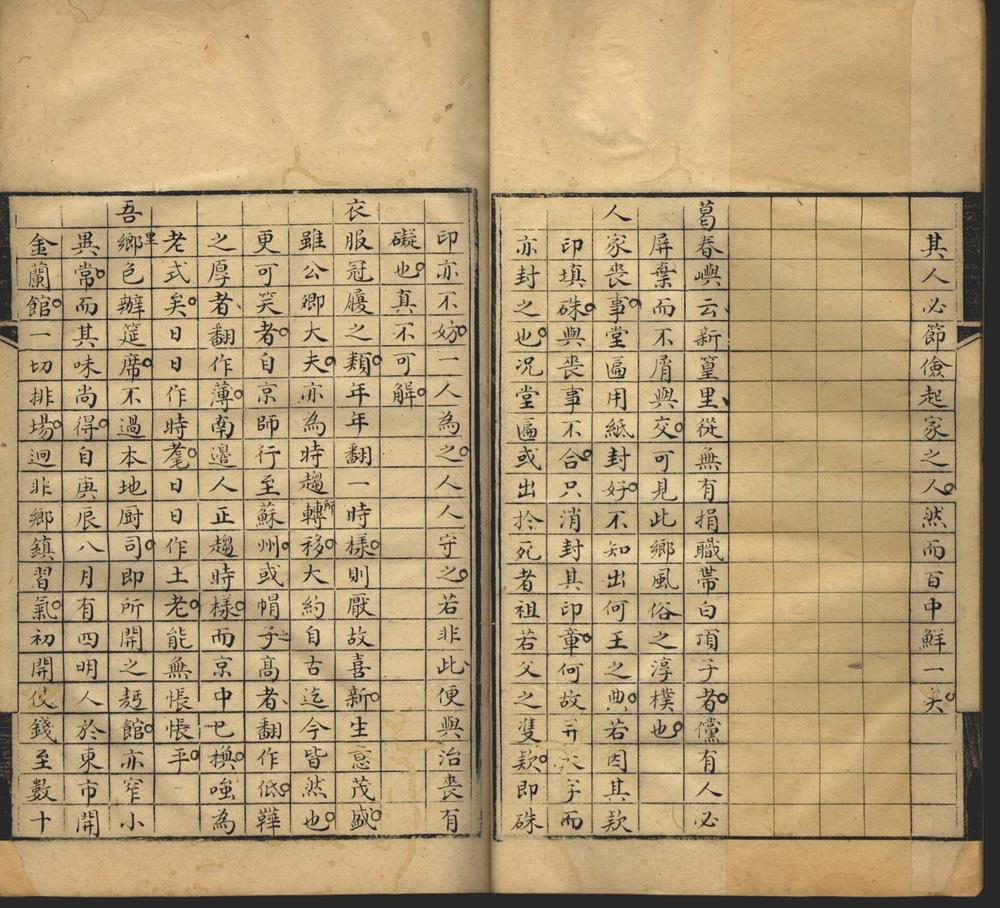 其人必節儉起家之人然而百中鮮一矣
葛春嶼云新篁里從無有捐職帶白頂子者儻有人必
屏棄而不屑與交可見此鄉風俗之淳樸也
人家喪事堂匾用紙封好不知出何王之典若因其款
印填硃與喪事不合只消封其印章何故并字而
亦封之也况堂匾或出扵死者祖若父之雙款即硃
印亦不妨一人為之人人守之若非此便與治喪有
礙也真不可解
衣服冠履之類年年翻一時樣則厭故喜新生意茂盛
雖公卿大夫亦為時趨所轉移大約自古迄今皆然也
更可笑者自京師行至蘇州或帽子之高者翻作低鞾
之厚者翻作薄南邉人正趨時樣而京中已換嗤為
老式矣日日作時髦日日作土老能無悵悵乎
吾鄉里色辦筵席不過本地厨司即所開之麪館亦窄小
異常而其味尚得自庚辰八月有四明人於東市開
金蘭館一切排場迥非鄉鎮習氣初開仪錢至數十